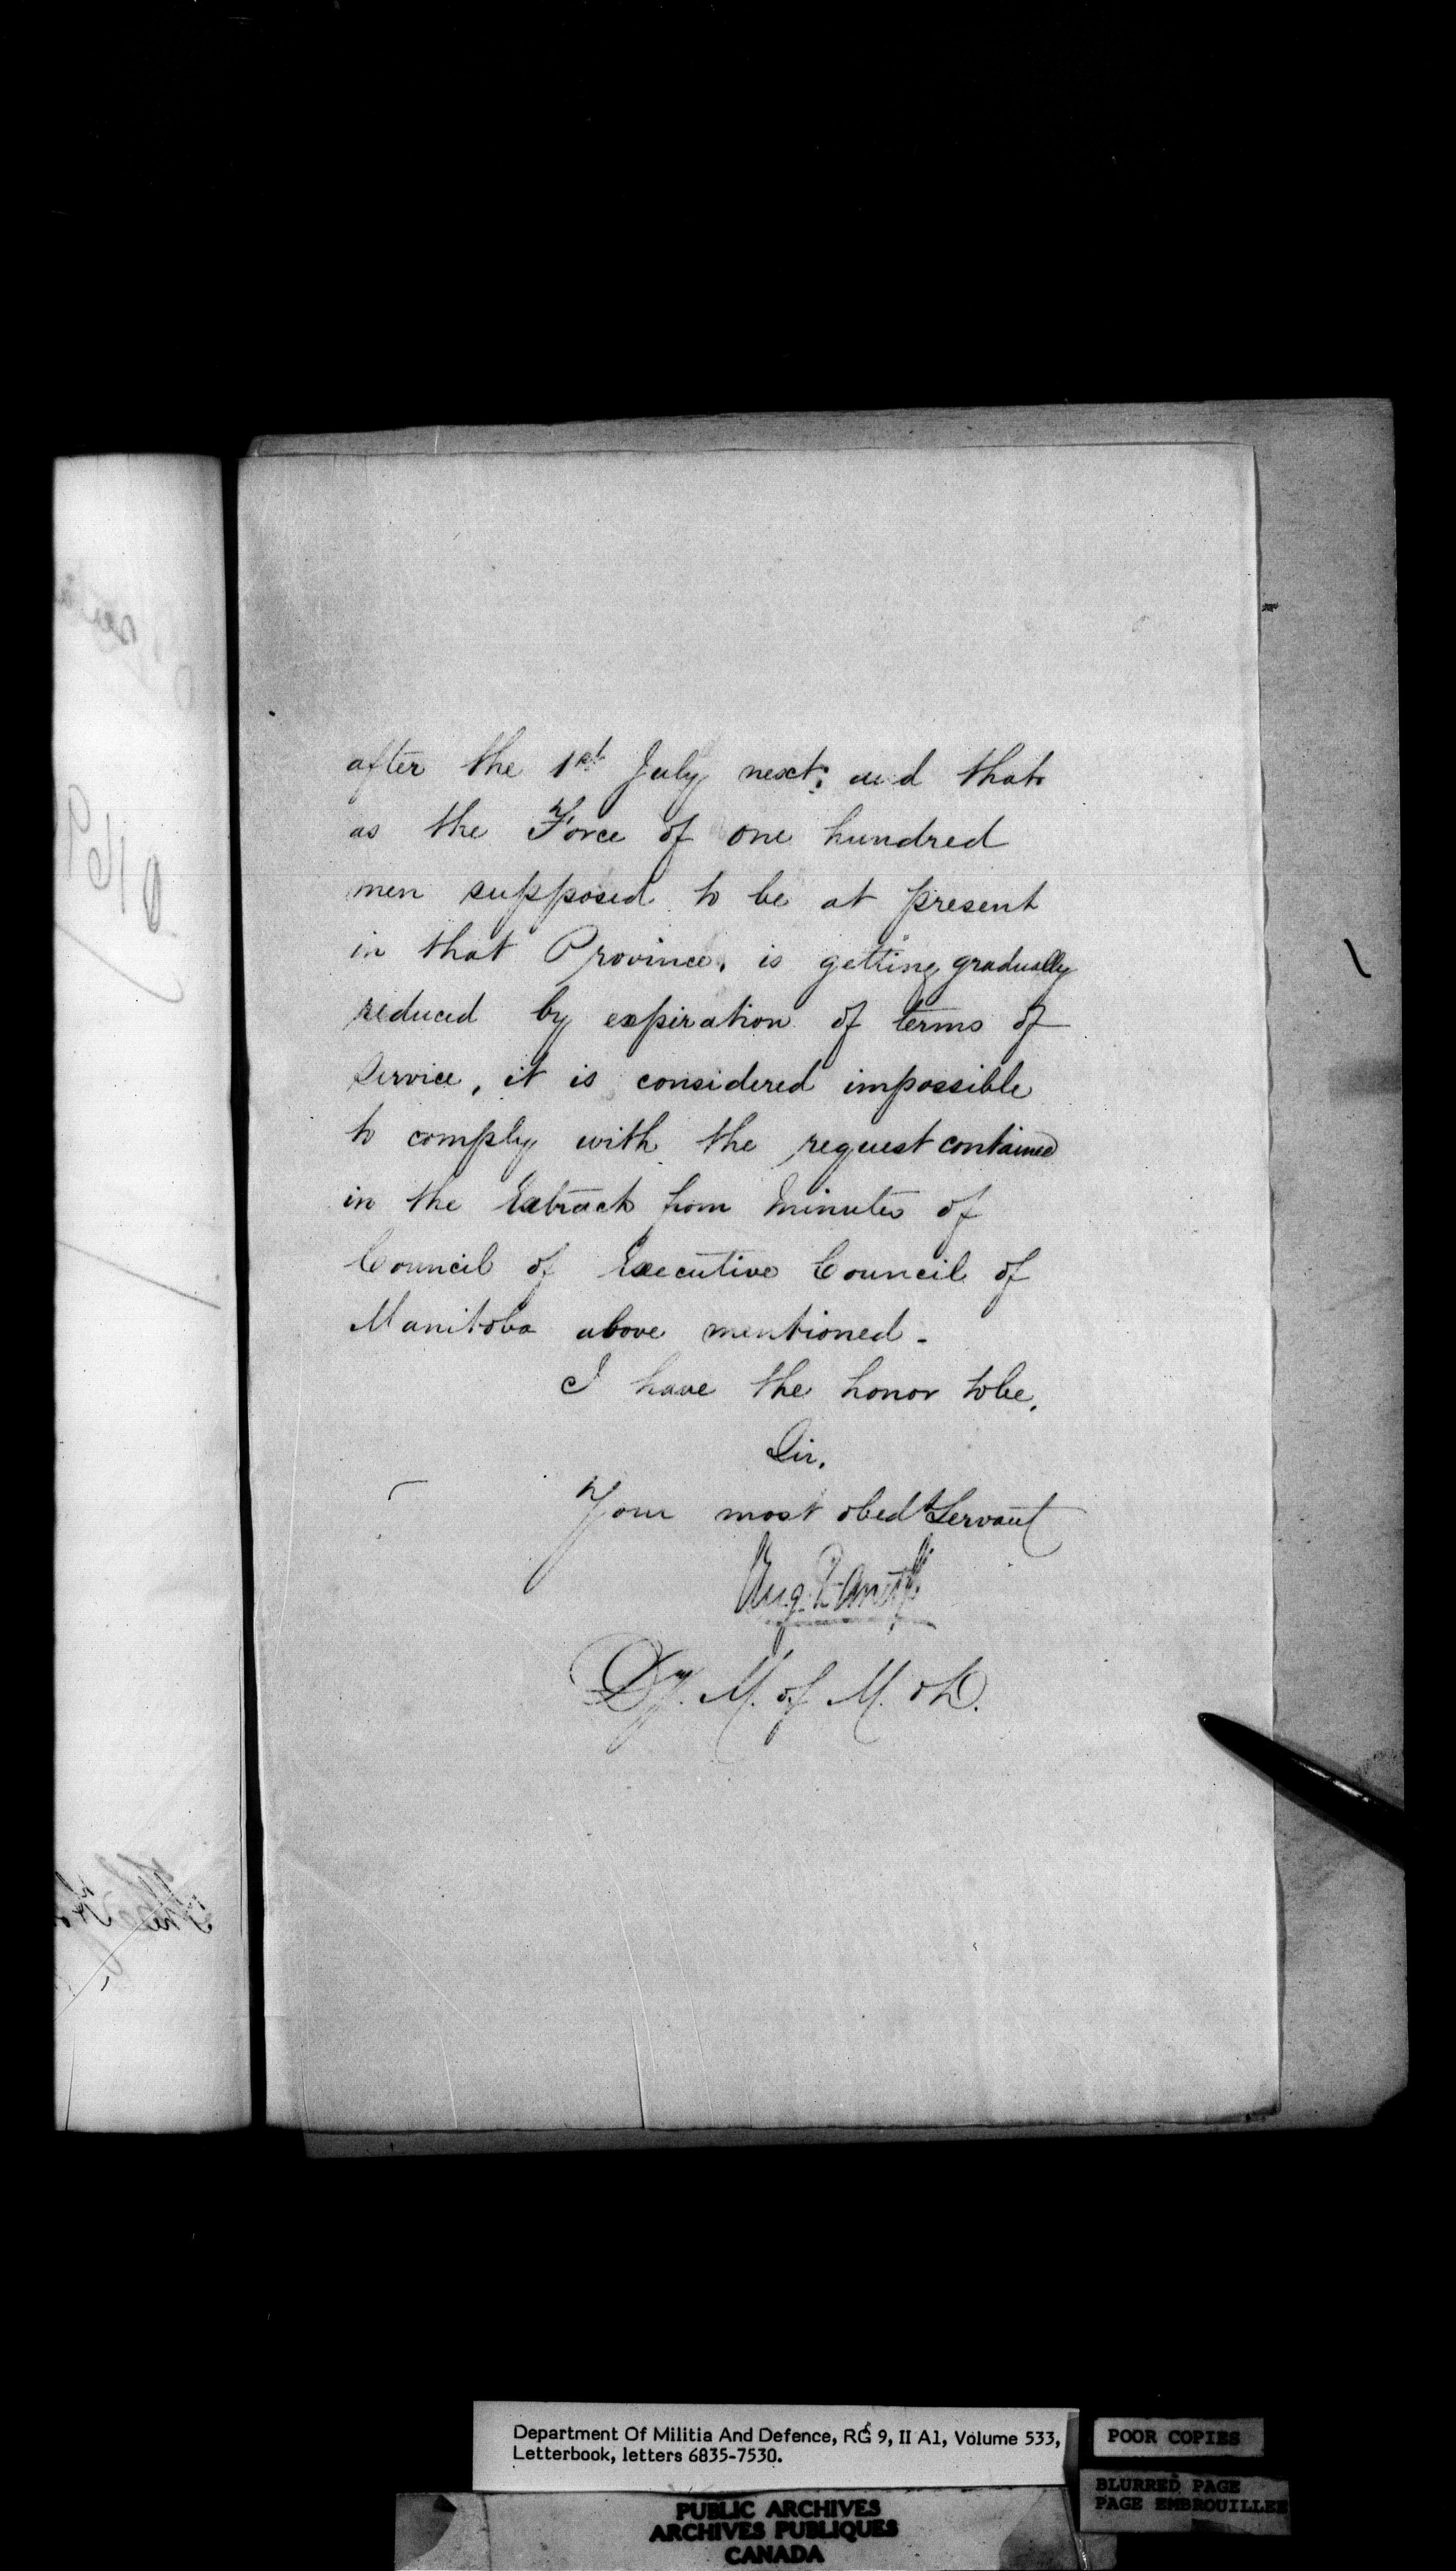 after the 1st July next; and that
as the Force of one hundred
men supposed to be at present
in that Province, is getting gradually
reduced by expiration of terms of
Service, it is considered impossible
to comply with the request contained
in the Extract from Minutes of
Council of Executive Council of
Manitoba above mentioned.
I have the honor to be,
Sir,
Your most obedt Servant
Dy. M. of M. & D.
Department Of Militia And Defence, RG 9, II A1, Volume 533,
Letterbook, letters 6835-7530.
POOR COPIES
BLURRED PAGE
PAGE EMBROUILLEE
PUBLIC ARCHIVES
ARCHIVES PUBLIQUES
CANADA